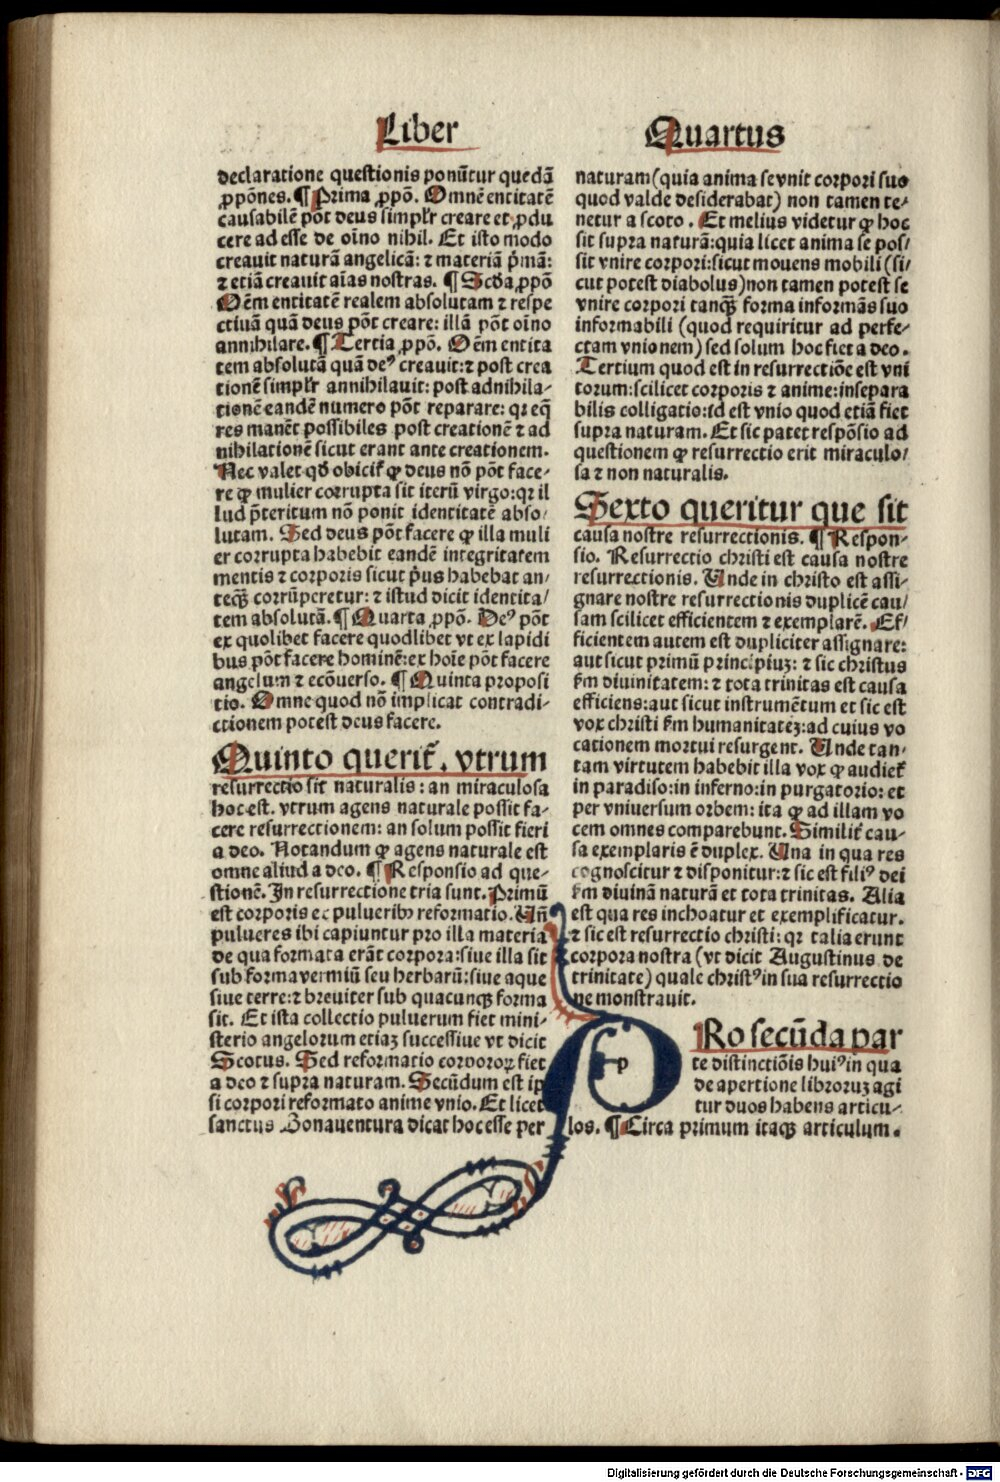 Liber Quartus
declaratione questionis ponūtur quedā
ꝓpōnes. ¶ Prima ꝓpō. Omnē entitatē
causabilē pōt deus simplr̄ creare et ꝓdu
cere ad esse de oīno nihil. Et isto modo
creauit naturā angelicā: ⁊ materiā p̄mā:
⁊ etiā creauit aīas nostras. ¶ Scd̄a ꝓpō
Oēm entitatē realem absolutam ⁊ respe
ctiuā quā deus pōt creare: illā pōt oīno
annihilare. ¶ Tertia ꝓpō. Oēm entita
tem absolutā quā deꝰ creauit: ⁊ post crea
tionē simplr̄ annihilauit: post adnihila-
tionē eandē numero pōt reparare: qꝛ eq̄
res manēt possibiles post creationē ⁊ ad
nihilationē sicut erant ante creationem.
Nec valet qd̄ obicit̄ ꝙ deus nō pōt face-
re ꝙ mulier corrupta sit iterū virgo: qꝛ il
lud p̄teritum nō ponit identitatē abso-
lutam. Sed deus pōt facere ꝙ illa muli
er corrupta habebit eandē integritatem
mentis ⁊ corporis sicut p̄us habebat an-
teqꝫ corrūperetur: ⁊ istud dicit identita/
tem absolutā. ¶ Quarta ꝓpō. Deꝰ pōt
ex quolibet facere quodlibet vt ex lapidi
bus pōt facere hominē: ex hoīe pōt facere
angelum ⁊ ecōuerso. ¶ Quinta proposi
tio. Omne quod nō implicat contradi-
ctionem potest deus facere.
Quinto querit̄. vtrum
resurrectio sit naturalis: an miraculosa
hoc est. vtrum agens naturale possit fa-
cere resurrectionem: an solum possit fieri
a deo. Notandum ꝙ agens naturale est
omne aliud a deo. ¶ Responsio ad que-
stionē. In resurrectione tria sunt. Primū
est corporis ec pulueribꝫ reformatio. Un̄
pulueres ibi capiuntur pro illa materia
de qua formata erāt corpora: siue illa sit
sub forma vermiū seu herbarū: siue aque
siue terre: ⁊ breuiter sub quacunqꝫ forma
sit. Et ista collectio puluerum fiet mini-
sterio angelorum etiaꝫ successiue vt dicit
Scotus. Sed reformatio corporoꝝ fiet
a deo ⁊ supra naturam. Secūdum est ip
si corpori reformato anime vnio. Et licet
sanctus Bonauentura dicat hoc esse per
naturam (quia anima se vnit corpori suo
quod valde desiderabat) non tamen te-
netur a scoto. Et melius videtur ꝙ hoc
sit supra naturā: quia licet anima se pos/
sit vnire corpori: sicut mouens mobili (si/
cut potest diabolus) non tamen potest se
vnire corpori tanqꝫ forma informās suo
informabili (quod requiritur ad perfe-
ctam vnionem) sed solum hoc fiet a deo.
Tertium quod est in resurrectiōe est vni
torum: scilicet corporis ⁊ anime: insepara
bilis colligatio: id est vnio quod etiā fiet
supra naturam. Et sic patet respōsio ad
questionem ꝙ resurrectio erit miraculo/
sa ⁊ non naturalis.
Sexto queritur que sit
causa nostre resurrectionis. ¶ Respon-
sio. Resurrectio christi est causa nostre
resurrectionis. Unde in christo est assi-
gnare nostre resurrectionis duplicē cau/
sam scilicet efficientem ⁊ exemplarē. Ef/
ficientem autem est dupliciter assignare:
aut sicut primū principiuꝫ: ⁊ sic christus
fm̄ diuinitatem: ⁊ tota trinitas est causa
efficiens: aut sicut instrumētum et sic est
vox christi fm̄ humanitateꝫ: ad cuius vo
cationem mortui resurgent. Unde tan-
tam virtutem habebit illa vox ꝙ audiet̄
in paradiso: in inferno: in purgatorio: et
per vniuersum orbem: ita ꝙ ad illam vo
cem omnes comparebunt. Similit̄ cau-
sa exemplaris ē duplex. Una in qua res
cognoscitur ⁊ disponitur: ⁊ sic est filiꝰ dei
fm̄ diuinā naturā et tota trinitas. Alia
est qua res inchoatur et exemplificatur.
⁊ sic est resurrectio christi: qꝛ talia erunt
corpora nostra (vt dicit Augustinus de
trinitate) quale christꝰ in sua resurrectio
ne monstrauit.
PRo secūda par
te distinctiōis huiꝰ in qua
de apertione libroruꝫ agi
tur duos habens articu-
los. ¶ Circa primum itaqꝫ articulum.
Digitalisierung gefördert durch die Deutsche Forschungsgemeinschaft - DFG